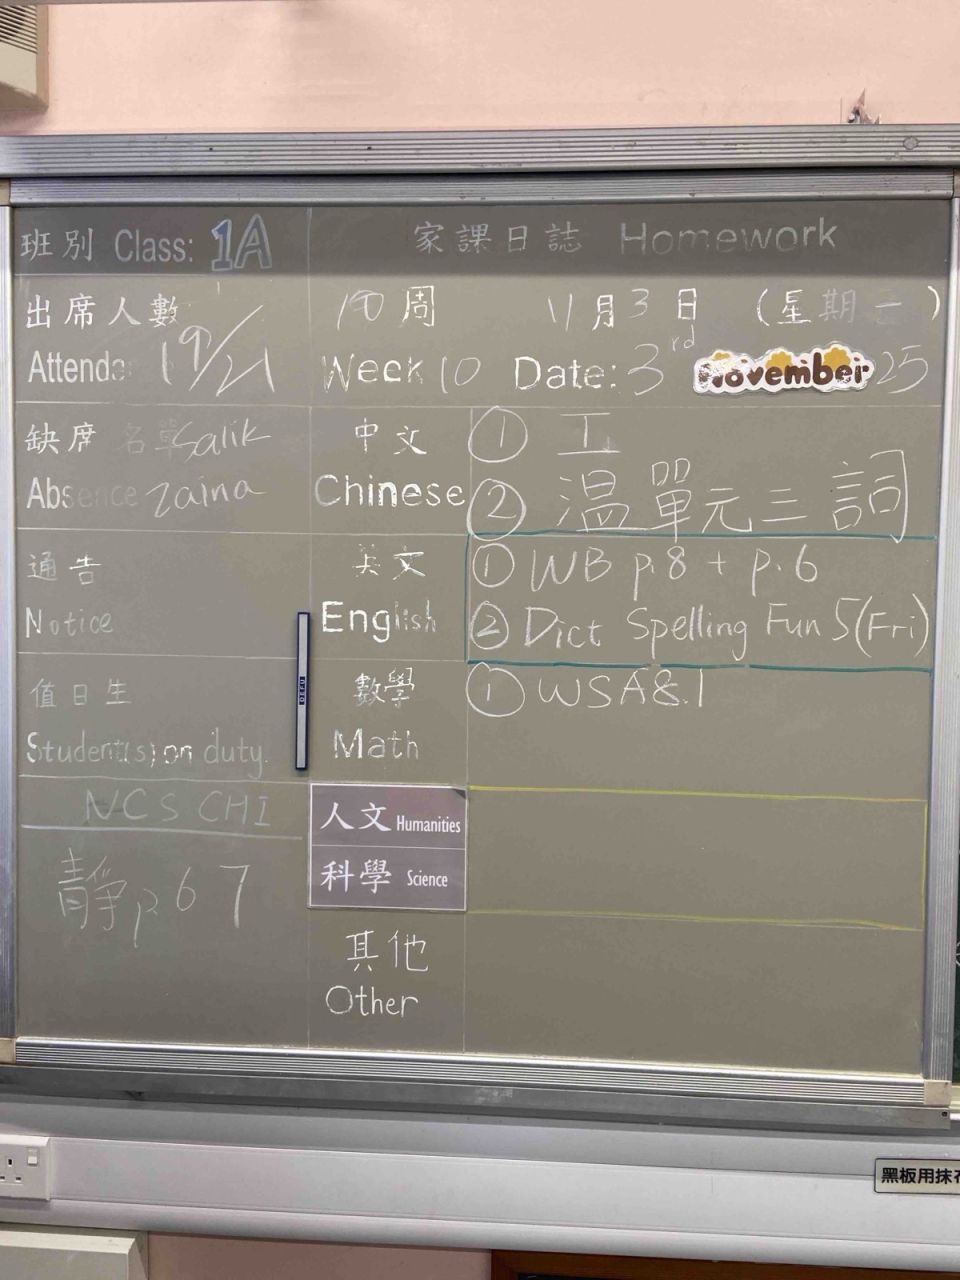 班別 Class: 1A
家課日誌 Homework
出席人數
19/21
10周 11月3日 (星期
Week 10 Date: 3rd November 25
缺席名單 Salik
Absence Zaina
中文
Chinese
① 工
② 温單元三詞
通告
Notice
英文
English
① WB p.8 + p.6
② Dict Spelling Fun 5 (Fri)
值日生
Student(s) on duty.
數學
Math
① WSA8.1
NCS CHI
靜p67
人文 Humanities
科學 Science
其他
Other
DELI
黑板用抹布